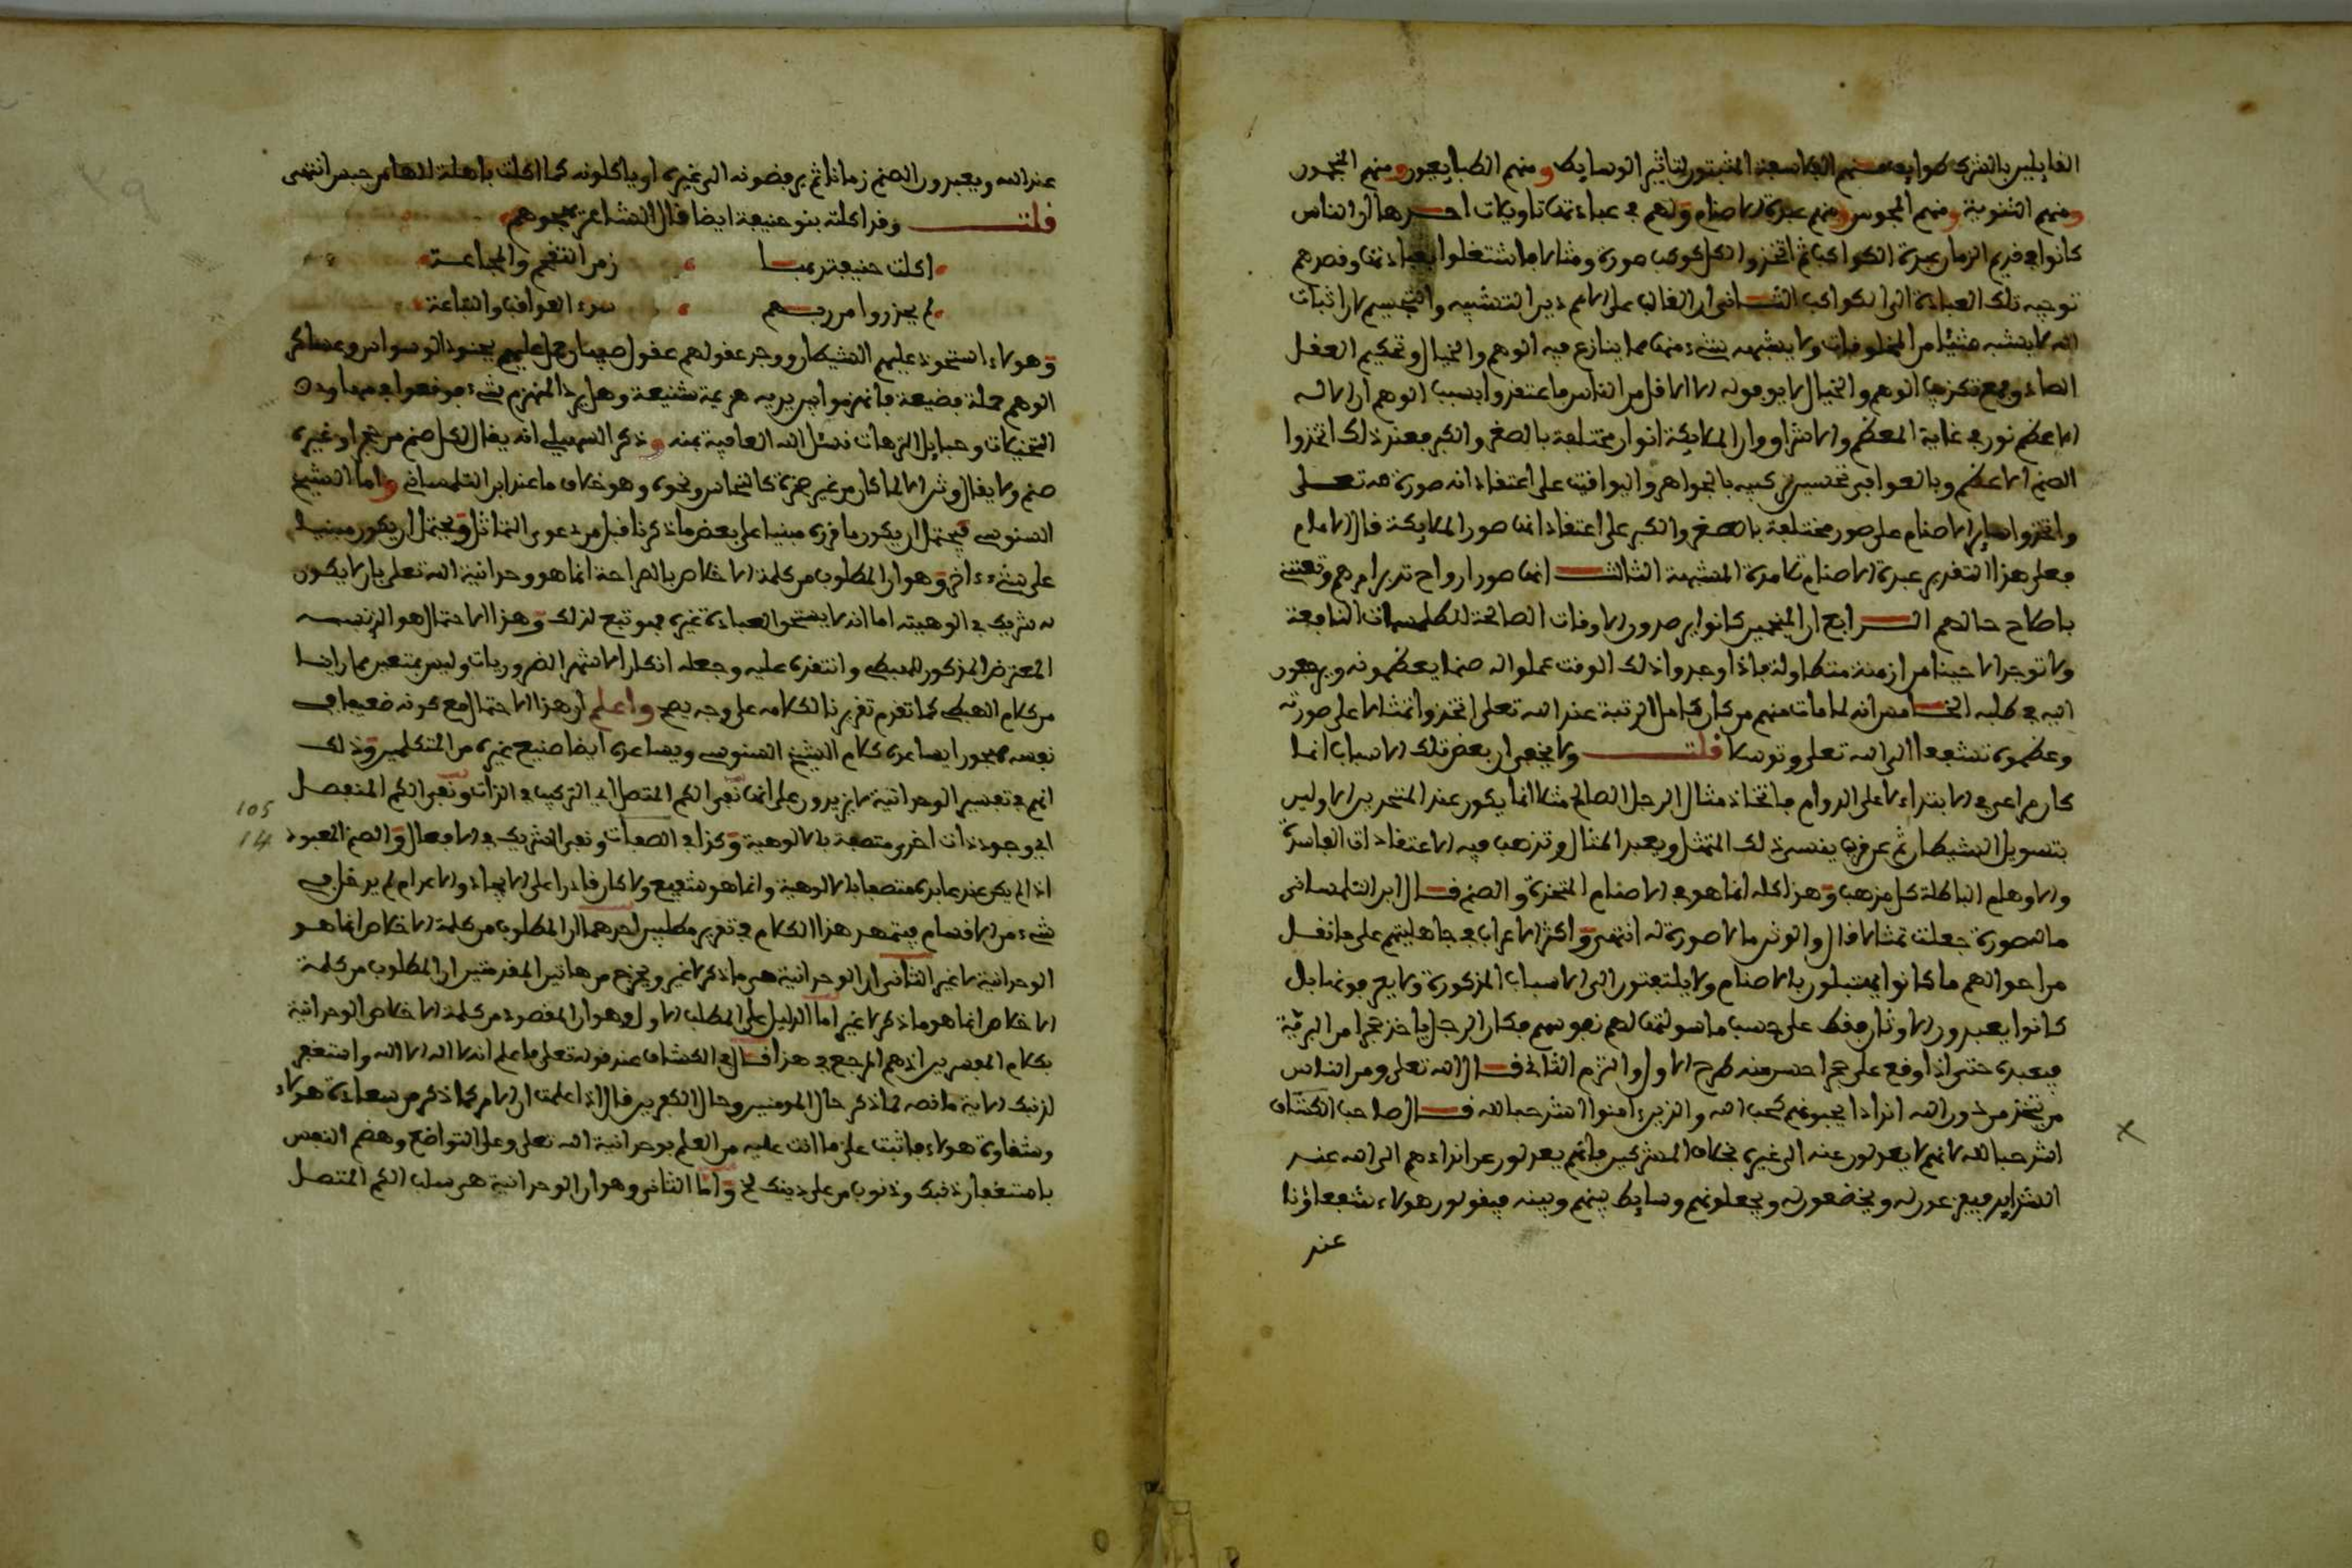 القايلين بالشرك طوايف منهم الفلاسفة المثبتون لتاثير الوسايط ومنهم الطبايعيون ومنهم المنجمون
ومنهم الثنوية ومنهم المجوس ومنهم عبدة الاصنام ولهم في عبادتها تاويلات احدها ان الناس
كانوا في قديم الزمان عبدة الكواكب ثم اتخذوا لكل كوكب صورة ومثالا واشتغلوا بعبادتها وقصدهم
توجيه تلك العبادة الى الكواكب الثاني ان الغالب على الامم دين التشبيه والتجسيم لان اثبات
اله لا يشبه شيئا من المخلوفات ولا يشبهه شيء منها مما ينازع فيه الوهم والخيال وتحكيم العقل
الصادق مع تكذيب الوهم والخيال لا يوفق له الا الاقل من الناس فاعتقدوا بسبب الوهم ان الاله
الاعظم نور في غاية العظم والاشراق وان الملايكة انوار مختلفة بالصغر والكبر فعند ذلك اتخذوا
الصنم الاعظم وبالغوا في تحسين تركيبه بالجواهر واليواقيت على اعتقاد انه صورة له تعلى
واتخذوا ساير الاصنام على صور مختلفة بالصغر والكبر على اعتقاد انها صور الملايكة قال الامام
فعلى هذا التقدير عبدة الاصنام تلامذة المشبهة الثالث انها صور ارواح تدبر امرهم وتعتني
باصلاح حالهم الرابع ان المنجمين كانوا يرصدون الاوقات الصالحة للطلسمات النافعة
ولا توجد الا حينا من ازمنة متطاولة فاذا وجدوا ذلك الوقت عملوا له صنما يعظمونه ويرجعون
اليه في طلبه الخامس انه لما مات منهم من كان كامل الرتبة عند الله تعلى اتخذوا تمثالا على صورته
وعظموه تشفعا الى الله تعلى وتوسلا قلت ولا يخفى ان بعض تلك الاسباب انما
كان مراعى في الابتداء لا على الدوام فاتخاذ مثال الرجل الصالح مثلا انما يكون عند المتخذين الاولين
بتسويل الشيطان ثم عن قريب ينسى ذلك المتمثل ويعبد المثال وتذهب فيه الاعتقادات الفاسدة
والاوهام الباطلة كل مذهب وهذا كله انما هو في الاصنام المتخذة والصنم قال ابن التلمساني
ما له صورة جعلت تمثالا قال والوثن ما لا صورة له انتهى واكثر الاعراب في جاهليتهم على ما نقل
من احوالهم ما كانوا يحتفلون بالاصنام ولا يلتفتون الى الاسباب المذكورة ولا يعرفونها بل
كانوا يعبدون الاوثان فقط على حسب ما سولتها لهم نفوسهم فكان الرجل ياخذ حجرا من البرية
فيعبده حتى اذا وقع على حجر احسن منه طرح الاول والتزم الثاني قال الله تعلى ومن الناس
من يتخذ من دون الله اندادا يحبونهم كحب الله والذين ءامنوا اشد حبا لله قال صاحب الكشاف
اشد حبا لله لانهم لا يعدلون عنه الى غيره بخلاف المشركين فانهم يعدلون عن اندادهم الى الله عند
الشدايد فيفزعون له ويخضعون له ويجعلونهم وسايط بينهم وبينه فيقولون هولاء شفعاؤنا
عند
عند الله ويعبدون الصنم زمانا ثم يرفضونه الى غيره او ياكلونه كما اكلت باهلة الهها من حيس انتهى
قلت وقد اكلته بنو حنيفة ايضا قال الشاعر يهجوهم
اكلت حنيفة ربها زمن التقحم والمجاعة
لم يحذروا من ربهم سوء العواقب والتباعة
وهولاء استحوذ عليهم الشيطان ووجد عقولهم عقول صبيان حمل عليهم بجنود الوسواس وعساكر
الوهم حملة فضيعة فانهزموا بين يديه هزيمة شنيعة وهل يرد المنهزم شيء فوقعوا في مهاوي
التخيلات وحبايل الترهات نسئل الله العافية بمنه وذكر السهيلي انه يقال لكل صنم من حجر او غيره
صنم ولا يقال وثن الا لما كان من غير صخرة كالنحاس ونحوه وهو خلاف ما عند ابن التلمساني واما الشيخ
السنوسي فيحتمل ان يكون ما قرره مبنيا على بعض ما ذكرنا قبل من دعوى التماثل ويحتمل ان يكون مبنيا
على شيء ءاخر وهو ان المطلوب من كلمة الاخلاص بالصراحة انما هو وحدانية الله تعلى بان لا يكون
له شريك في الوهيته اما انه لا يستحق العبادة غيره فهو تبع لذلك وهذا الاحتمال هو الذي
المعترض المذكور للهبطي وانتقده عليه وجعله انكارا لاشهر الضروريات وليس بمتعين مما راينا
من كلام الهبطي كما تقدم تقريرنا لكلامه على وجه يصح واعلم ان هذا الاحتمال مع كونه ضعيفا في
نفسه مهجورا يساعده كلام الشيخ السنوسي ويساعده ايضا صنيع غيره من المتكلمين وذلك
انهم في تفسير الوحدانية لا يزيدون على انها نفي الكم المتصل اي التركيب في الذات ونفي الكم المنفصل
اي وجود ذات اخرى متصفة بالالوهية وكذا في الصفات ونفي الشريك في الافعال والصنم المعبود
اذا لم يكن عند عابده متصفا بالالوهية وانما هو شفيع ولا كان قادرا على الايجاد والاعدام لم يدخل في
شيء من الاقسام فيتمهد هذا الكلام في تقرير مطلبين احدهما ان المطلوب من كلمة الاخلاص انما هو
الوحدانية لا غير الثاني ان الوحدانية هي ما ذكر لا غير ويخرج من هاتين المقدمتين ان المطلوب من كلمة
الاخلاص انما هو ما ذكر لا غير اما الدليل على المطلب الاول وهو ان المقصود من كلمة الاخلاص الوحدانية
فكلام المفسرين اذ هم المرجع في هذا قال في الكشاف عند قوله تعلى فاعلم انه لا اله الا الله واستغفر
لذنبك الاية ما نصه لما ذكر حال المومنين وحال الكافرين قال اذا علمت ان الامر كما ذكر من سعادة هولاء
وشقاوة هولاء فاثبت على ما انت عليه من العلم بوحدانية الله تعلى وعلى التواضع وهضم النفس
باستغفار ذنبك وذنوب من على دينك لخ واما الثاني وهو ان الوحدانية هي سلب الكم المتصل
105
14